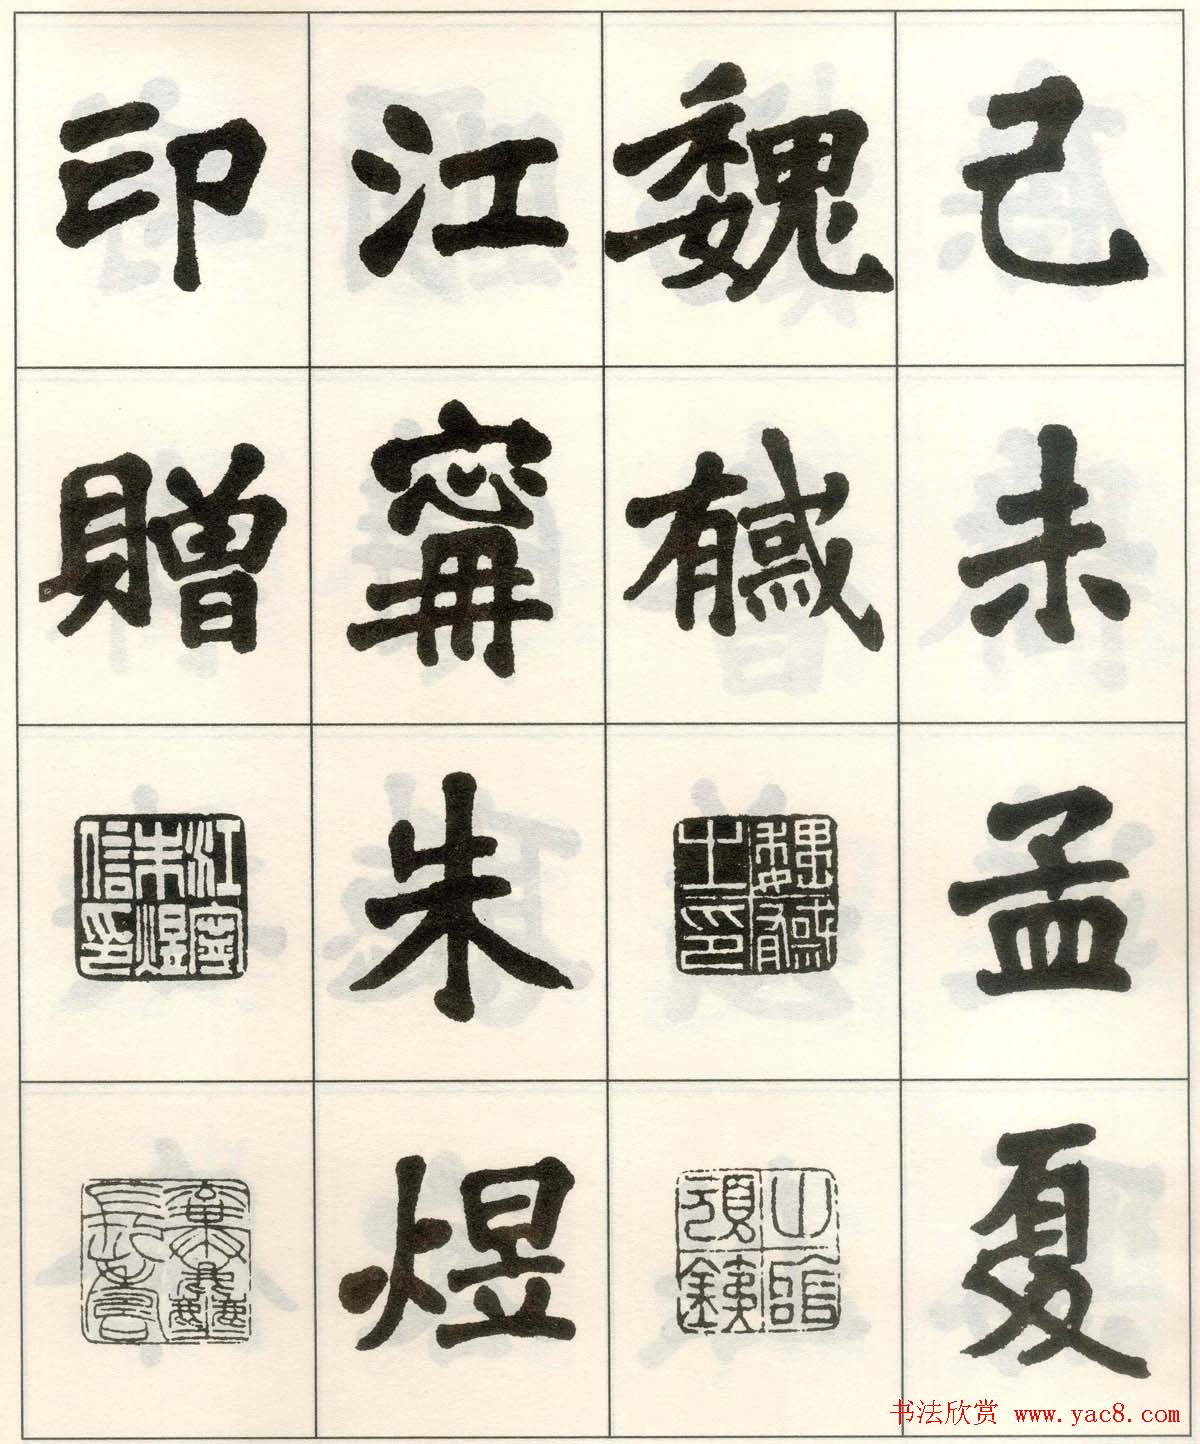 己未孟夏
魏戫
江寧朱煜
江寧朱煜信印
印贈
书法欣赏 www.yac8.com